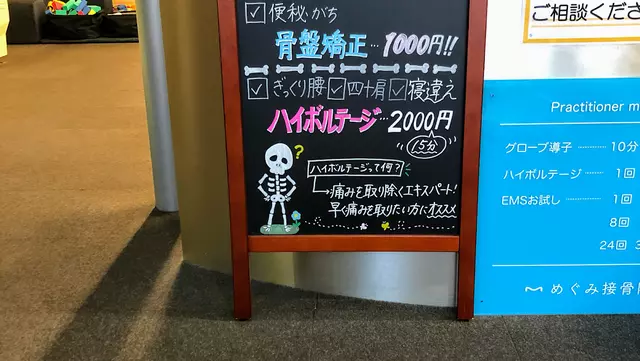 ☑便秘がち
骨盤矯正…1000円!!
☑ぎっくり腰☑四十肩☑寝違え
ハイボルテージ…2000円
15分
?
ハイボルテージって何?
→痛みを取り除くエキスパート!
早く痛みを取りたい方にオススメ
ご相談くださ
Practitioner m
グローブ導子 ……… 10分
ハイボルテージ ……… 1回
EMSお試し ……… 1回
8回
24回 3
めぐみ接骨